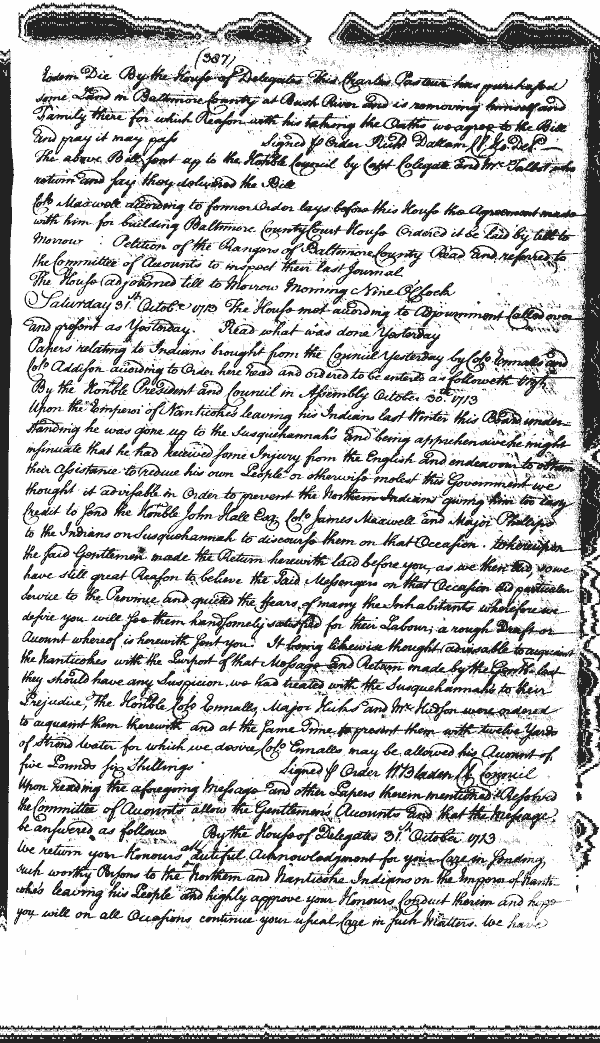 (387)
Eodem Die By the House of Delegates This Charles Pasteur has purchased
some Land in Baltimore County at Bush River and is removing himself and
Family there for which Reason with his taking the Oaths we agree to the Bill
and pray it may pass Signed p Order Richd Dallam Cl Ho. Del.
The above Bill sent up to the Honble Council by Capt Colegate and Mr Talbot who
return and say they delivered the Bill
Colo Maxwell according to former Order lays before this House the Agreement made
with him for building Baltimore County Court House Ordered it be laid by till to
Morrow Petition of the Rangers of Baltimore County Read and referred to
the Committee of Accounts to inspect their last Journal
The House adjourned till to Morrow Morning Nine O Clock
Saturday 31th October 1713 The House met according to Adjournment Called over
and present as Yesterday. Read what was done Yesterday
Papers relating to Indians brought from the Council Yesterday by Colo Ennalls and
Colo Addison according to Order here Read and ordered to be entered as followeth
By the Honble President and Council in Assembly October 30th 1713
Upon the Emperor of Nanticokes leaving his Indians last Winter this Board under-
standing he was gone up to the Susquehannahs and being apprehensive he might
insinuate that he had Received some Injury from the English and endeavour to obtain
their Assistance to reduce his own People or otherwise molest this Government we
thought it advisable in Order to prevent the Northern Indians giving him too easy
Credit to send the Honble John Hall Esqr Colo James Maxwell and Major Phillips
to the Indians on Susquehannah to discourse them on that Occasion. whereupon
the said Gentlemen made the Return herewith laid before you, as we then had, so we
have still great Reason to believe the said Messengers on that Occasion did particular
Service to the Province and quieted the Fears of many the Inhabitants wherefore we
desire you will see them handsomely satisfied for their Labour; a rough Draft or
Account whereof is herewith sent you. It being likewise thought advisable to acquaint
the Nanticokes with the Purport of that Message and Return made by the Gentn. lest
they should have any Suspicion, we had treated with the Susquehannahs to their
Prejudice, The Honble Colo Ennalls, Major Hicks and Mr Hodson were ordered
to acquaint them therewith and at the same Time to present them with twelve Yards
of Stroud water for which we desire Colo Ennalls may be allowed his Account of
five Pounds six Shillings Signed p Order W Bladen Cl Council
Upon Reading the aforegoing Message and other Papers therein mentioned Resolved
the Committee of Accounts allow the Gentlemen's Accounts and that the Message
be answered as follows By the House of Delegates 31th October 1713
We return your Honours all dutiful Acknowledgment for your Care in sending
such worthy Persons to the Northern and Nanticoke Indians on the Emperor of Nanti-
coke's leaving his People and highly approve your Honours Conduct therein and hope
you will on all Occasions continue your usual Care in such Matters. We have